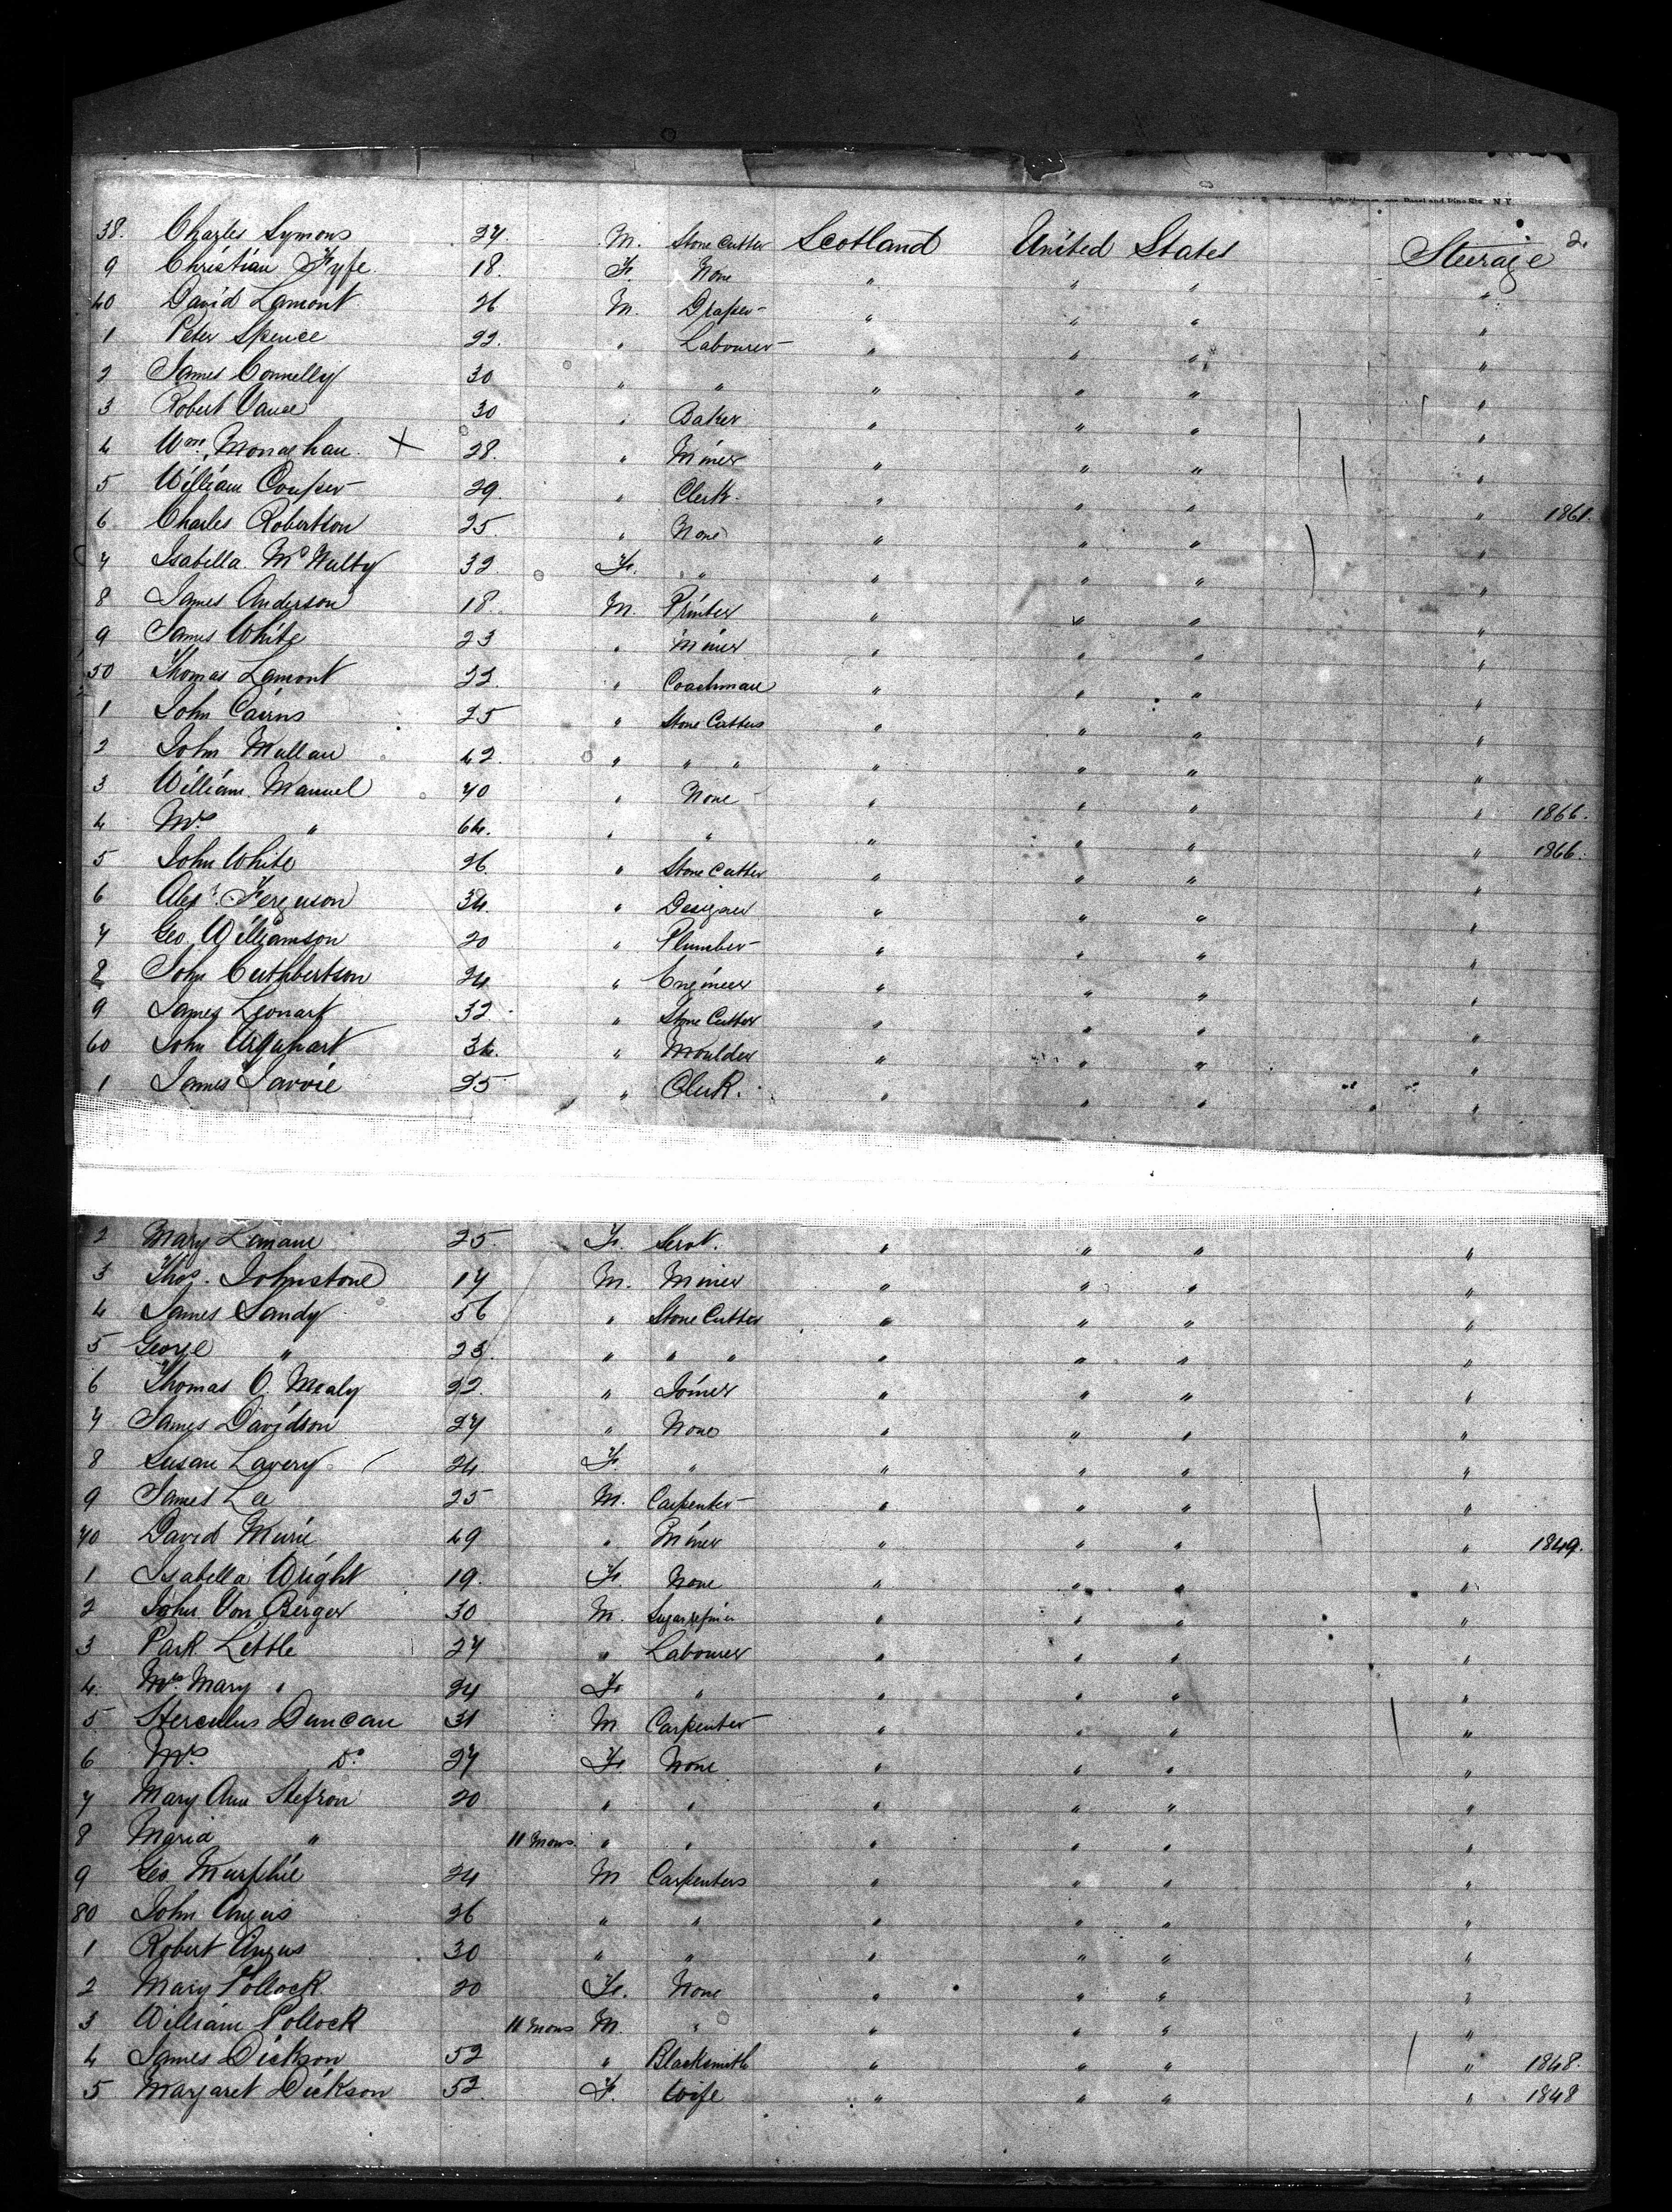 2.
38. Charles Symons 27. M. Stone Cutter Scotland United States Steerage
9 Christian Fyfe 18. F. None " " " "
40 David Lamont 26 M. Draper " " " "
1 Peter Spence 22. " Labourer " " " "
2 James Connelly 30 " " " " " "
3 Robert Vance 30 " Baker " " " "
4 Wm. Monaghan X 28. " Miner " " " "
5 William Couper 29. " Clerk. " " " " 1861.
6 Charles Robertson 25. " None " " " "
7 Isabella Mc Nulty 32. F. " " " " "
8 James Anderson 18. M. Printer " " " "
9 James White 23 " Miner " " " "
50 Thomas Lamont 22. " Coachman " " " "
1 John Cairns 25 " Stone Cutters " " " "
2 John Mullan 42. " " " " " " "
3 William Manuel 70 " None " " " " 1866.
4 Mrs " 64. " " " " " " 1866.
5 John White 26. " Stone Cutter " " " "
6 Alexr. Ferguson 34. " Designer " " " "
7 Geo. Williamson 20 " Plumber " " " "
8 John Cuthbertson 24 " Engineer " " " "
9 James Leonart 32. " Stone Cutter " " " "
60 John Urquhart 34. " Moulder " " " "
1 James Javvie 25. " Clerk. " " " "
2 Mary 25. F. Servt. " " " "
3 Thos. Johnstone 17 M. Miner " " " "
4 James Sandy 56 " Stone Cutter " " " "
5 George " 23. " " " " " " "
6 Thomas O. Mealy 22. " Joiner " " " "
7 James Davidson 27 " None " " " "
8 Susan Lavery 24. F " " " " "
9 James Lee 25 M. Carpenter " " " "
70 David Murie 49 " Miner " " " " 1849.
1 Isabella Wright 19. F. None " " " "
2 John Von Berger 30 M. Sugar refiner " " " "
3 Park Little 27 " Labourer " " " "
4. Mrs. Mary " 24 F " " " " "
5 Herculus Duncan 31 M Carpenter " " " "
6 Mrs Do. 27 F. None " " " "
7 Mary Ann Hefron 20 " " " " " "
8 Maria " 11 Mons. " " " " " "
9 Geo. Murphie 24 M Carpenters " " " "
80 John Angus 26 " " " " " "
1 Robert Angus 30 " " " " " "
2 Mary Pollock 20 F. None " " " "
3 William Pollock 11 Mons M. " " " " "
4 James Dickson 52 " Blacksmith " " " " 1848.
5 Margaret Dickson 52. F. Wife " " " " 1848